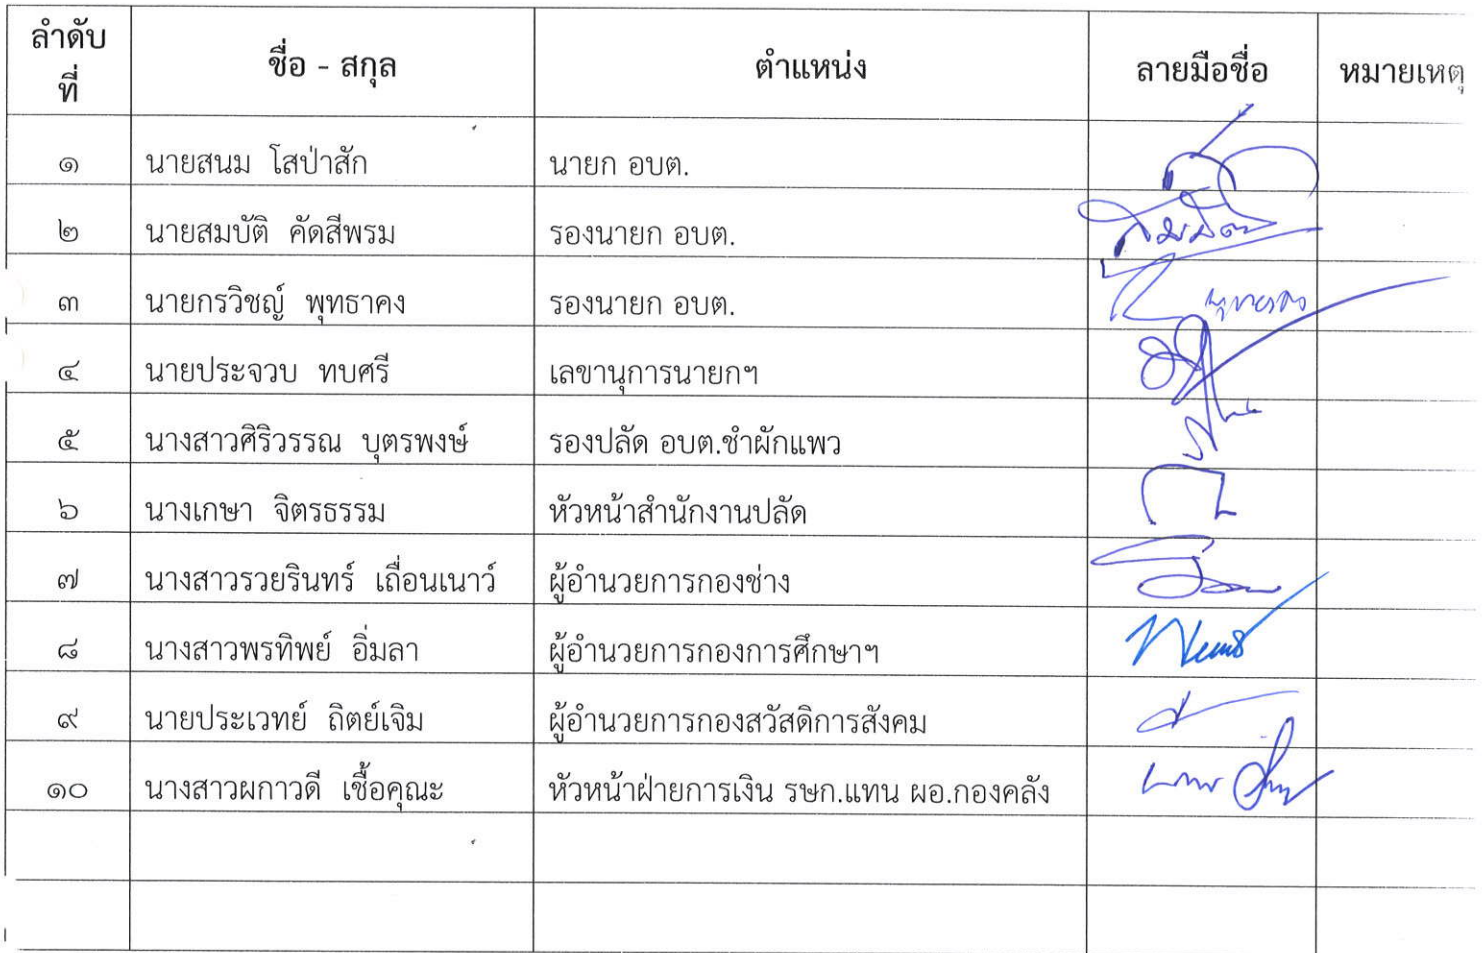 ลำดับที่ ชื่อ - สกุล ตำแหน่ง ลายมือชื่อ หมายเหตุ
๑ นายสนม โสป่าสัก นายก อบต.
๒ นายสมบัติ คัดสีพรม รองนายก อบต. สมบัติ
๓ นายกรวิชญ์ พุทธาคง รองนายก อบต.
๔ นายประจวบ ทบศรี เลขานุการนายกฯ
๕ นางสาวศิริวรรณ บุตรพงษ์ รองปลัด อบต.ชำผักแพว
๖ นางเกษา จิตรธรรม หัวหน้าสำนักงานปลัด
๗ นางสาวรวยรินทร์ เถื่อนเนาว์ ผู้อำนวยการกองช่าง
๘ นางสาวพรทิพย์ อิ่มลา ผู้อำนวยการกองการศึกษาฯ
๙ นายประเวทย์ ถิตย์เจิม ผู้อำนวยการกองสวัสดิการสังคม
๑๐ นางสาวผกาวดี เชื้อคุณะ หัวหน้าฝ่ายการเงิน รษก.แทน ผอ.กองคลัง